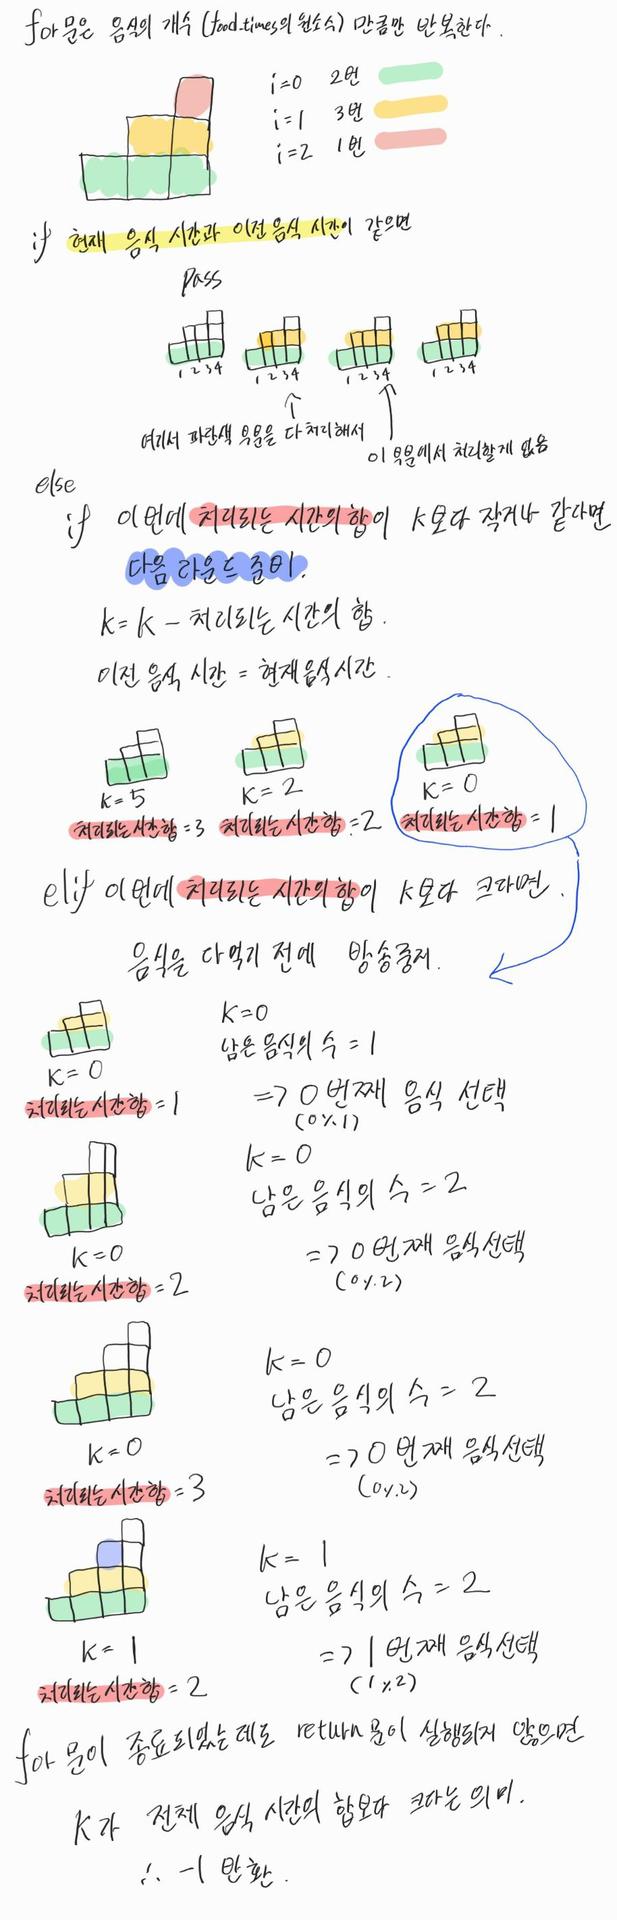 for 문은 음식의 개수 (food_times의 원소수) 만큼만 반복한다.
i=0 2번
i=1 3번
i=2 1번
if 현재 음식 시간과 이전 음식 시간이 같으면
pass
1 2 3 4
1 2 3 4
1 2 3 4
1 2 3 4
여기서 파란색 부분을 다 처리해서
이 부분에서 처리할게 없음
else
if 이번에 처리되는 시간의 합이 K보다 작거나 같다면
다음 라운드 준비.
k = k - 처리되는 시간의 합.
이전 음식 시간 = 현재 음식시간.
K=5
처리되는 시간합 = 3
K=2
처리되는 시간합 = 2
K=0
처리되는 시간합 = 1
elif 이번에 처리되는 시간의 합이 K보다 크다면.
음식을 다먹기 전에 방송중지.
K=0
처리되는 시간합 = 1
K=0
남은 음식의 수 = 1
=> 0번째 음식 선택
(0%1)
K=0
처리되는 시간합 = 2
K=0
남은 음식의 수 = 2
=> 0번째 음식선택
(0%2)
K=0
처리되는 시간합 = 3
K=0
남은 음식의 수 = 2
=> 0번째 음식선택
(0%2)
K=1
처리되는 시간합 = 2
K=1
남은 음식의 수 = 2
=> 1번째 음식선택
(1%2)
for 문이 종료되었는데도 return문이 실행되지 않으면
K가 전체 음식 시간의 합보다 크다는 의미.
∴ -1 반환.